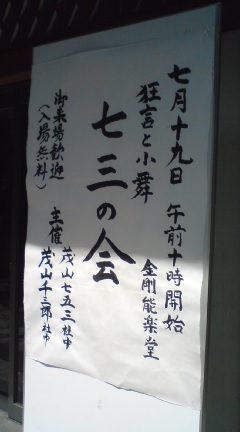 七月十九日 午前十時開始
狂言と小舞 金剛能楽堂
七三の会
主催 茂山七五三社中
茂山千三郎社中
御来場歓迎
(入場無料)